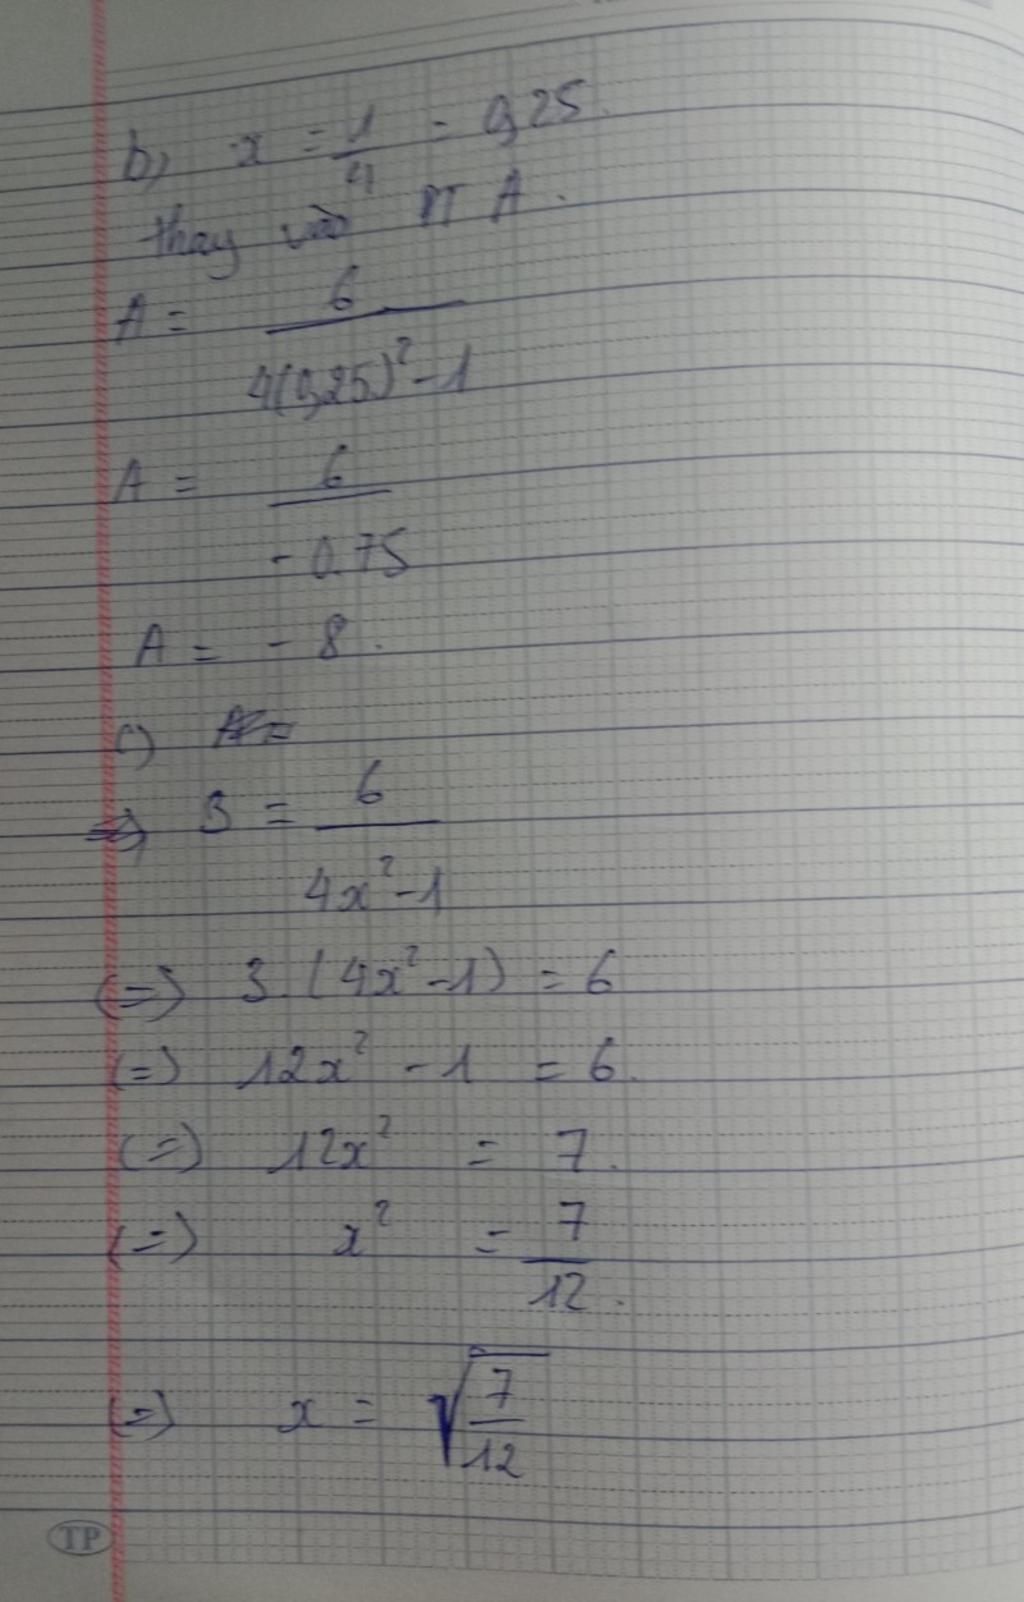 b) x = 1/4 = 0,25.
thay vào PT A.
A = 6/(4(0,25)²-1)
A = 6/(-0.75)
A = -8.
c) A =
=> 3 = 6/(4x²-1)
(=) 3.(4x²-1) = 6
(=) 12x² - 1 = 6.
(=) 12x² = 7.
(=) x² = 7/12.
(=) x = √(7/12)
TP